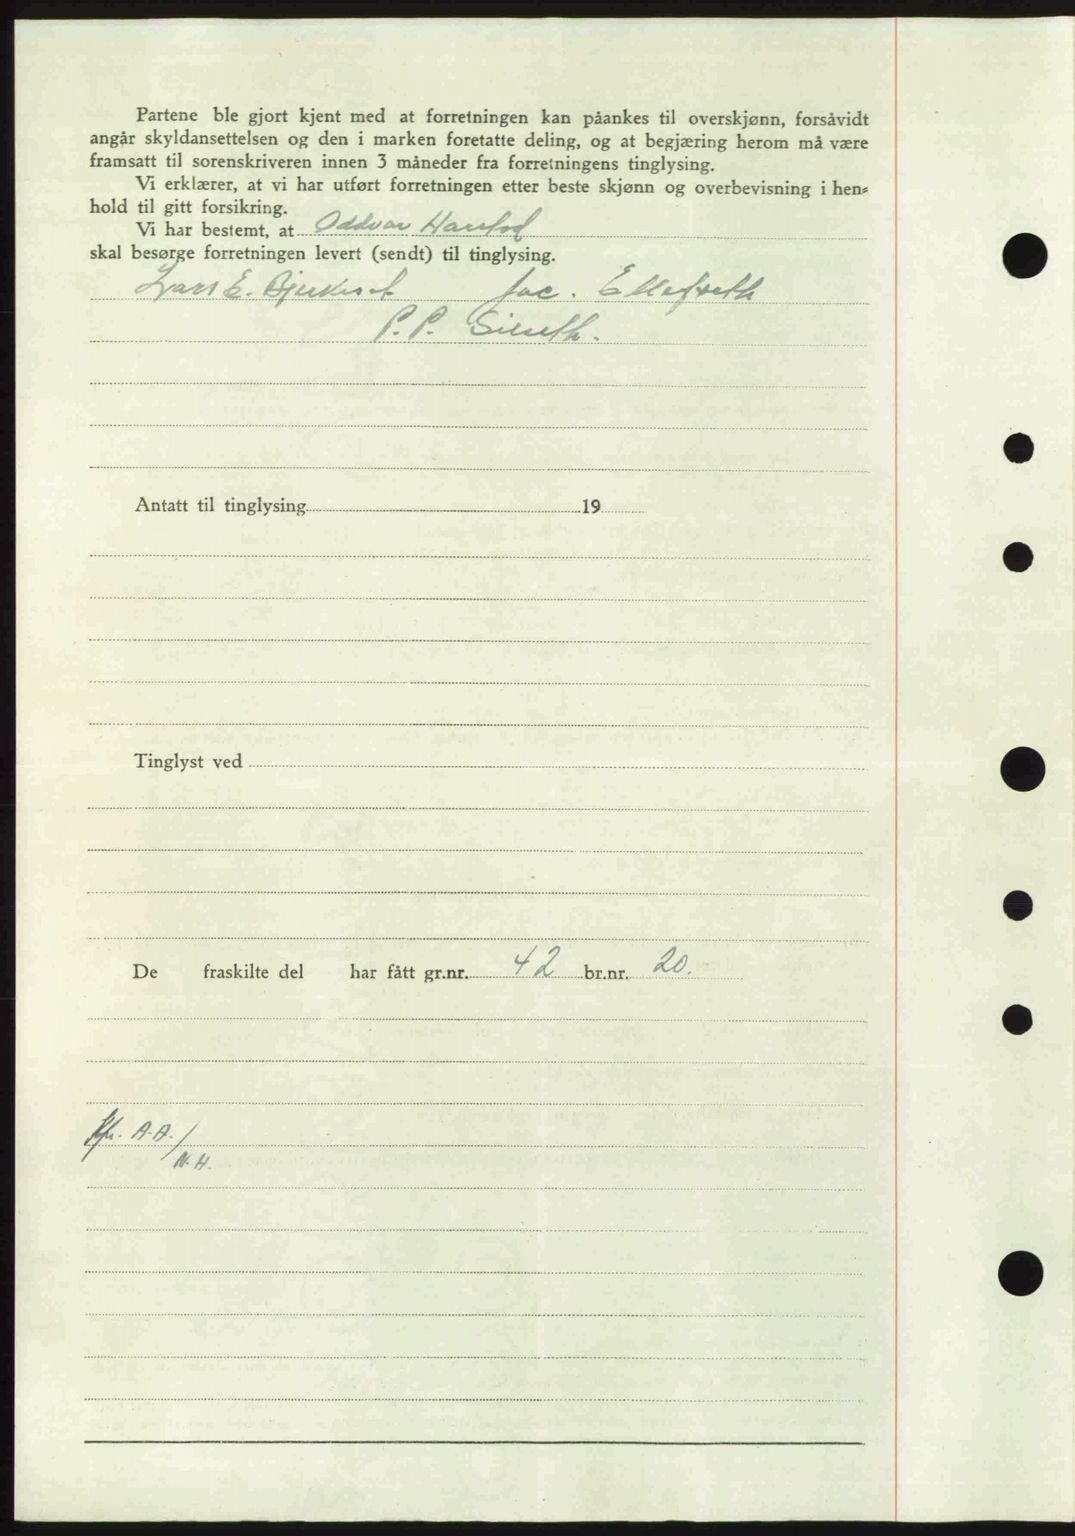 Partene ble gjort kjent med at forretningen kan påankes til overskjønn, forsåvidt
angår skyldansettelsen og den i marken foretatte deling, og at begjæring herom må være
framsatt til sorenskriveren innen 3 måneder fra forretningens tinglysing.
Vi erklærer, at vi har utført forretningen etter beste skjønn og overbevisning i hen=
hold til gitt forsikring.
Vi har bestemt, at Oddvar
skal besørge forretningen levert (sendt) til tinglysing.
Lars E. Bjerkeset Jac. Ellefseth
P. P. Silseth.
Antatt til tinglysing 19
Tinglyst ved
De fraskilte del har fått gr.nr. 42 br.nr. 20.
Kfr. A.A./
N.H.